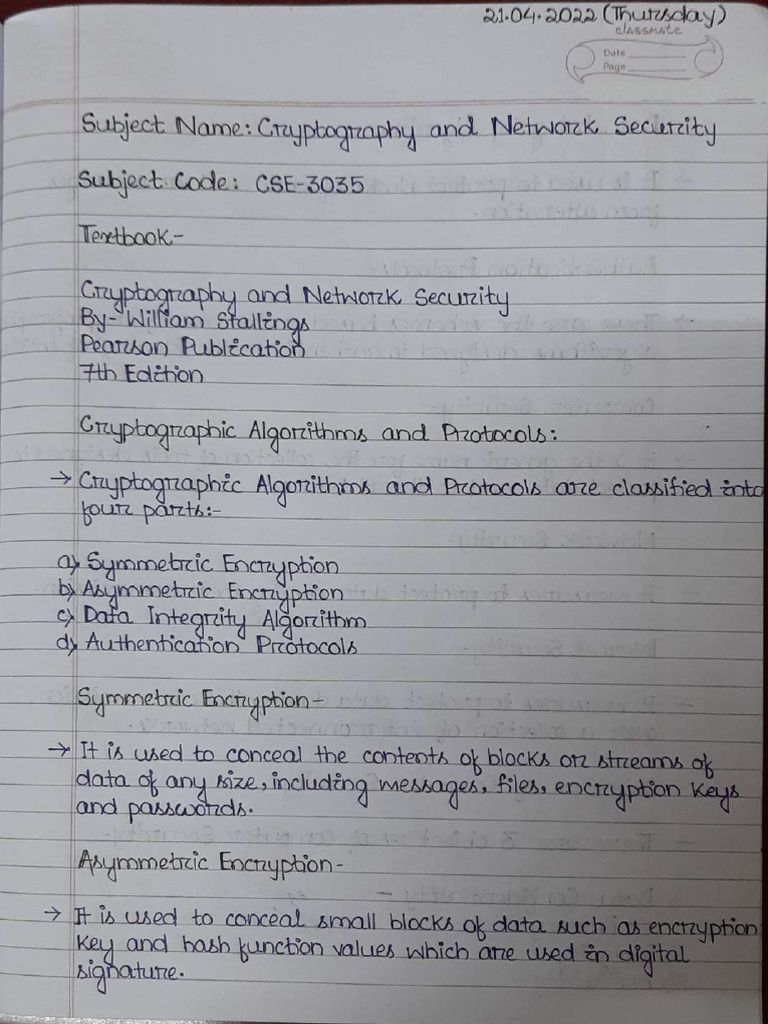 21.04.2022 (Thursday)
classmate
Date
Page
Subject Name: Cryptography and Network Security
Subject Code: CSE-3035
Textbook-
Cryptography and Network Security
By- William Stallings
Pearson Publication
7th Edition
Cryptographic Algorithms and Protocols:
→ Cryptographic Algorithms and Protocols are classified into
four parts:-
a) Symmetric Encryption
b) Asymmetric Encryption
c) Data Integrity Algorithm
d) Authentication Protocols
Symmetric Encryption-
→ It is used to conceal the contents of blocks or streams of
data of any size, including messages, files, encryption keys
and passwords.
Asymmetric Encryption-
→ It is used to conceal small blocks of data such as encryption
key and hash function values which are used in digital
signature.